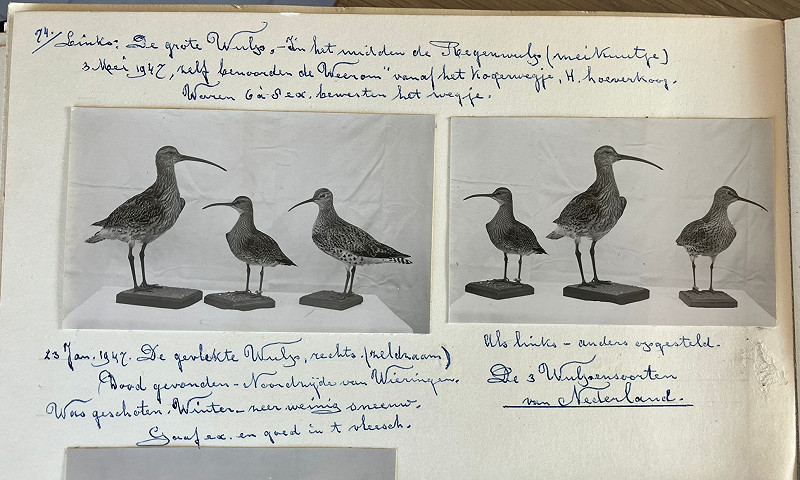 74./ Links: De grote Wulp, - In het midden de Regenwulp (meikneutje)
3 Mei 1947, zelf benoorden de Weerom" vanaf het Kogerwegje, H. hoeverkoog.
Waren 6 à 8 ex. bewesten het wegje.
23 Jan. 1947. De gevlekte Wulp, rechts. (zeldzaam)
Dood gevonden - Noordzijde van Wieringen.
Was geschoten. Winter - zeer weinig sneeuw.
Gaaf ex. en goed in 't vleesch.
Als links - anders opgesteld.
De 3 Wulpensoorten
van Nederland.